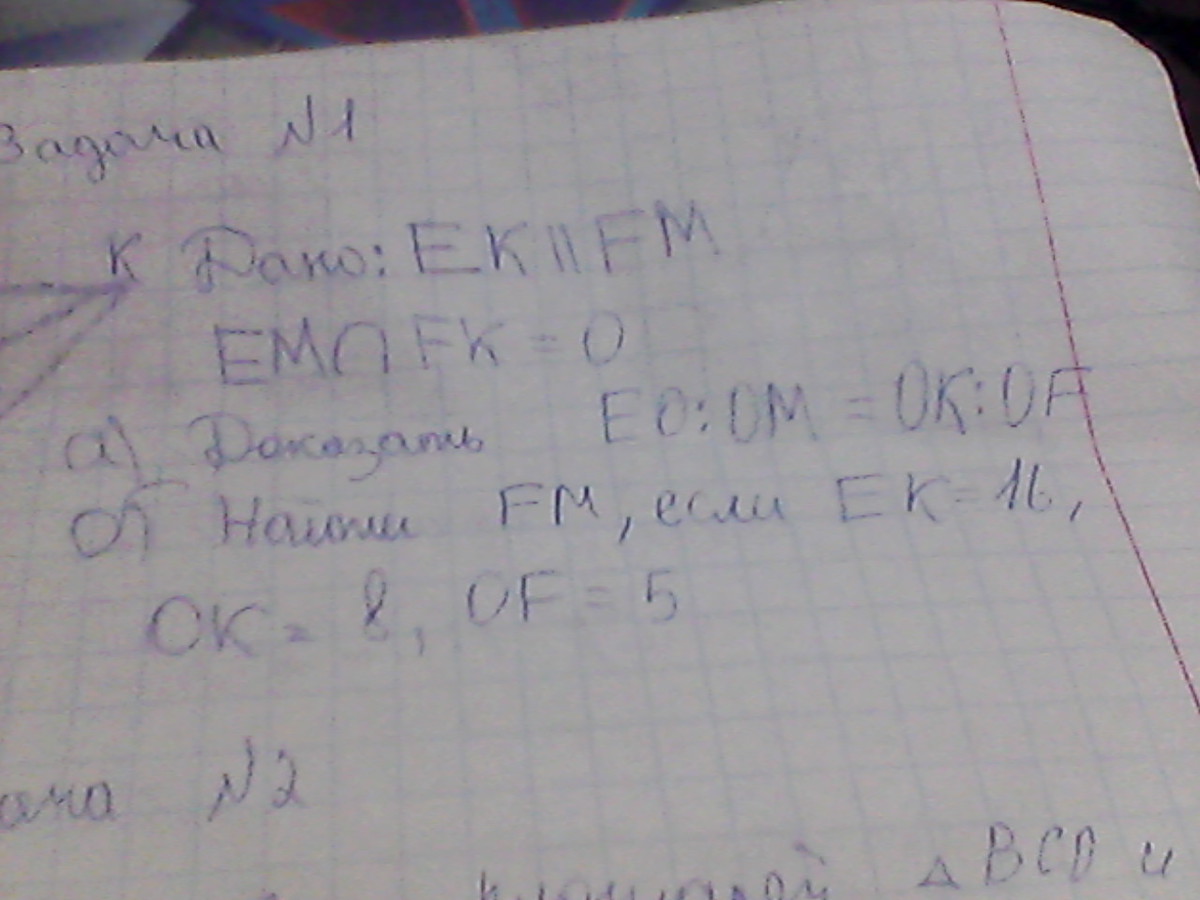 Задача №1
К Дано: EK || FM
EM∩FK = O
а) Доказать EO:OM = OK:OF
б Найти FM, если EK=16,
OK= 8, OF= 5
ача №2
△BCD и